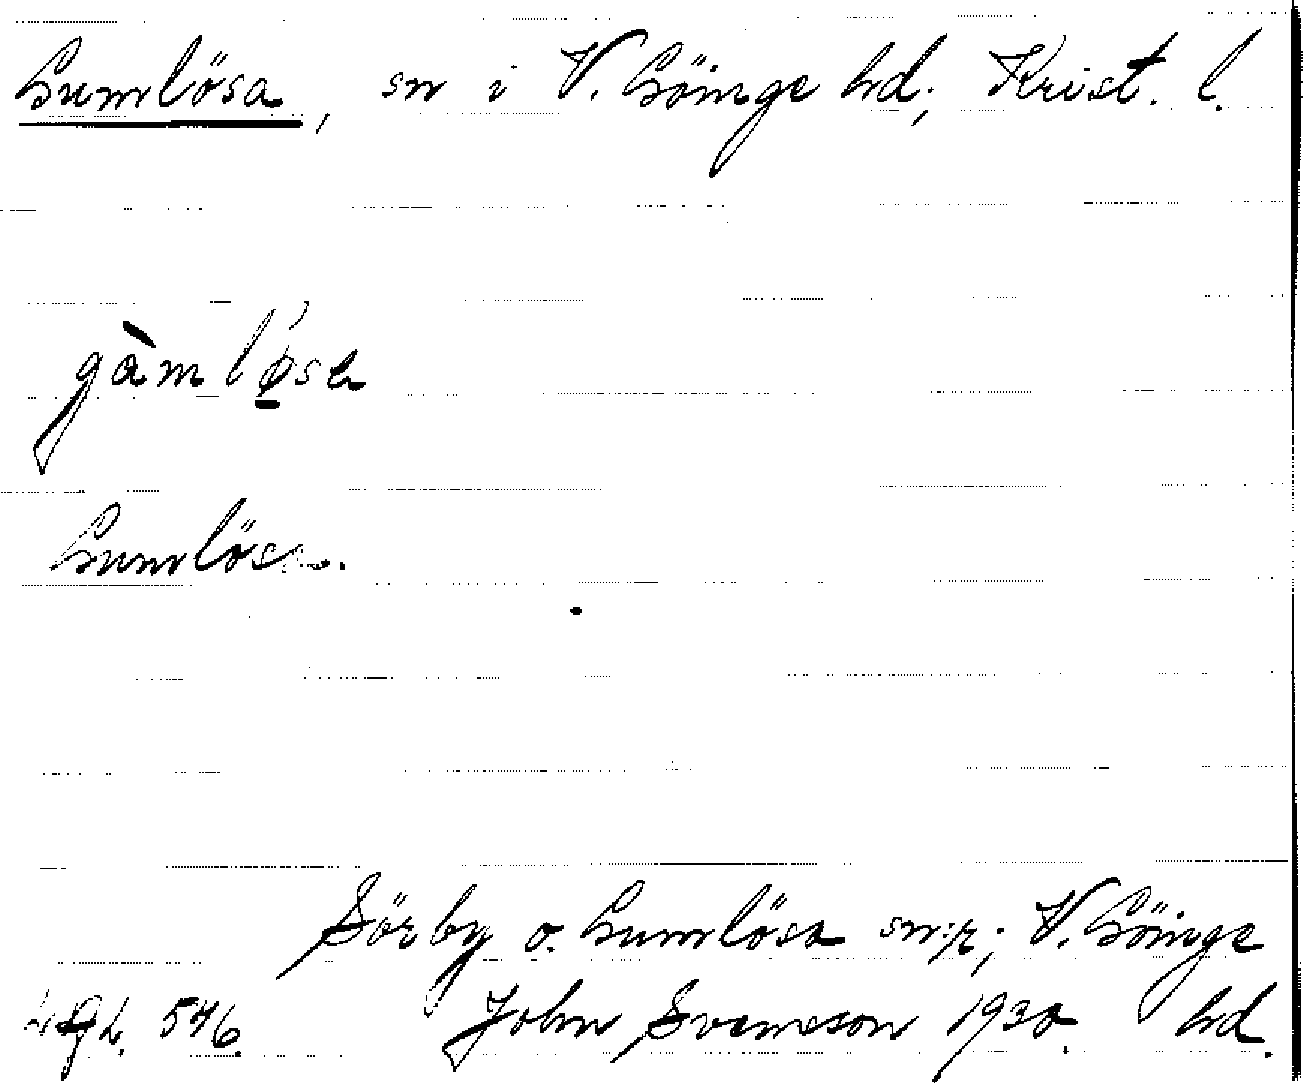 Gumlösa, sn i V. Göinge hd, Krist. l.
gàmlø̱sa
Gumlösa.
Sörby o. Gumlösa sn:r, V. Göinge
546. John Svensson 1930. hd.